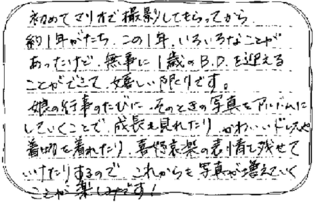 初めてマリオで撮影してもらってから
約1年がたち、この1年、いろいろなことが
あったけど、無事に1歳のB.D.を迎える
ことができて、嬉しい限りです。
娘の行事のたびに、そのときの写真をアルバムに
していくことで、成長も見れたり、かわいいドレスや
着物を着れたり、喜怒哀楽の表情を残せて
いけたりするので、これからも写真が増えていく
ことが楽しみです!